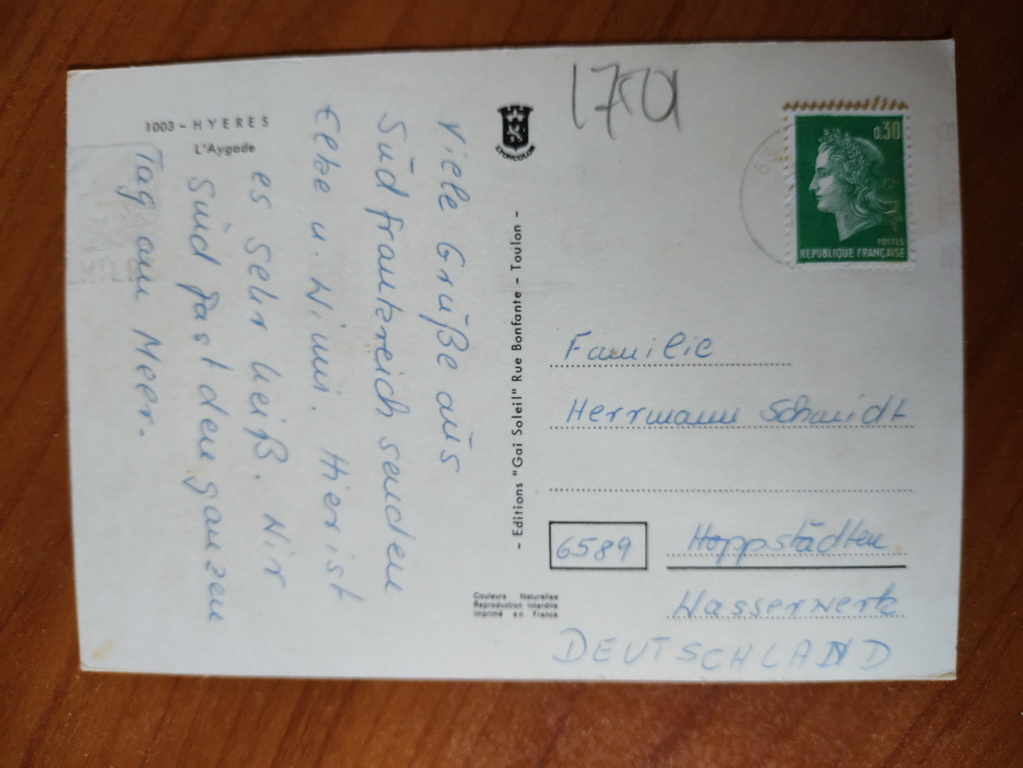 1003 - HYERES
L'Aygade
Viele Grüße aus
Südfrankreich senden
Elke u. Willi. Hier ist
es sehr heiß. Wir
sind fast den ganzen
Tag am Meer.
LYONCOLOR
- Editions "Gai Soleil" Rue Bonfante - Toulon -
Couleurs Naturelles
Reproduction interdite
Imprimé en France
0,30
POSTES
REPUBLIQUE FRANÇAISE
Familie
Herrmann Schmidt
6589
Hoppstädten
Wasserwerk
DEUTSCHLAND